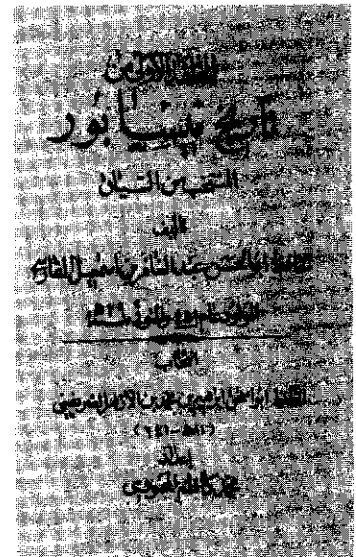 الحلقة الأولى من
تاريخ نيسابور
المنتخب من السياق
تأليف
أبو الحسن عبد الغافر بن إسماعيل الفارسي
انتخاب
الحافظ أبو إسحاق إبراهيم بن محمد بن الأزهر الصريفيني
(٥٨١-٦٤١)
إعداد
محمد كاظم المحمودي